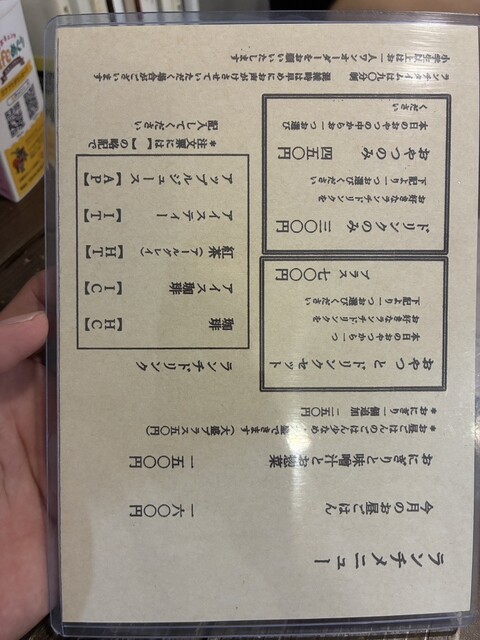 ランチメニュー
今月のお昼ごはん 一六〇〇円
おにぎりと味噌汁とお惣菜 一五〇〇円
*お昼ごはんのごはん少なめ 盛できます(大盛プラス五〇円)
*おにぎり一個追加 二五〇円
おやつとドリンクセット
本日のおやつから一つ
お好きなランチドリンクを
下記より一つお選びください
プラス 七〇〇円
ドリンクのみ 三〇〇円
お好きなランチドリンクを
下記より一つお選びください
おやつのみ 四五〇円
本日のおやつの中からお一つお選び
ください
ランチドリンク
珈琲 【HC】
アイス珈琲 【IC】
紅茶(アールグレイ) 【HT】
アイスティー 【IT】
アップルジュース 【AP】
*注文票には【 】の略記で
記入してください
ランチタイムは九〇分制 混雑時は早めにお声がけさせていただく場合がございます
小学生以上はお一人ワンオーダーをお願いいたします